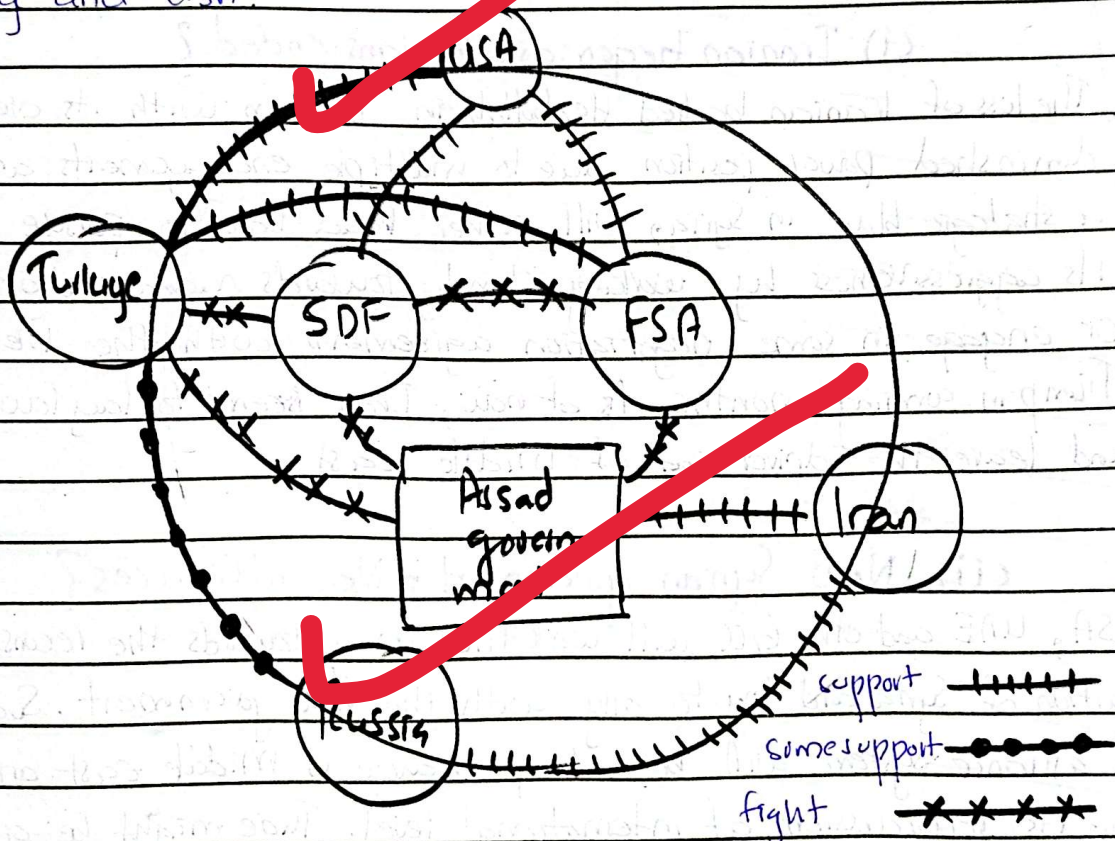 USA
Turkiye
SDF
FSA
Assad
govern
ment
Iran
Russia
support
some support
fight